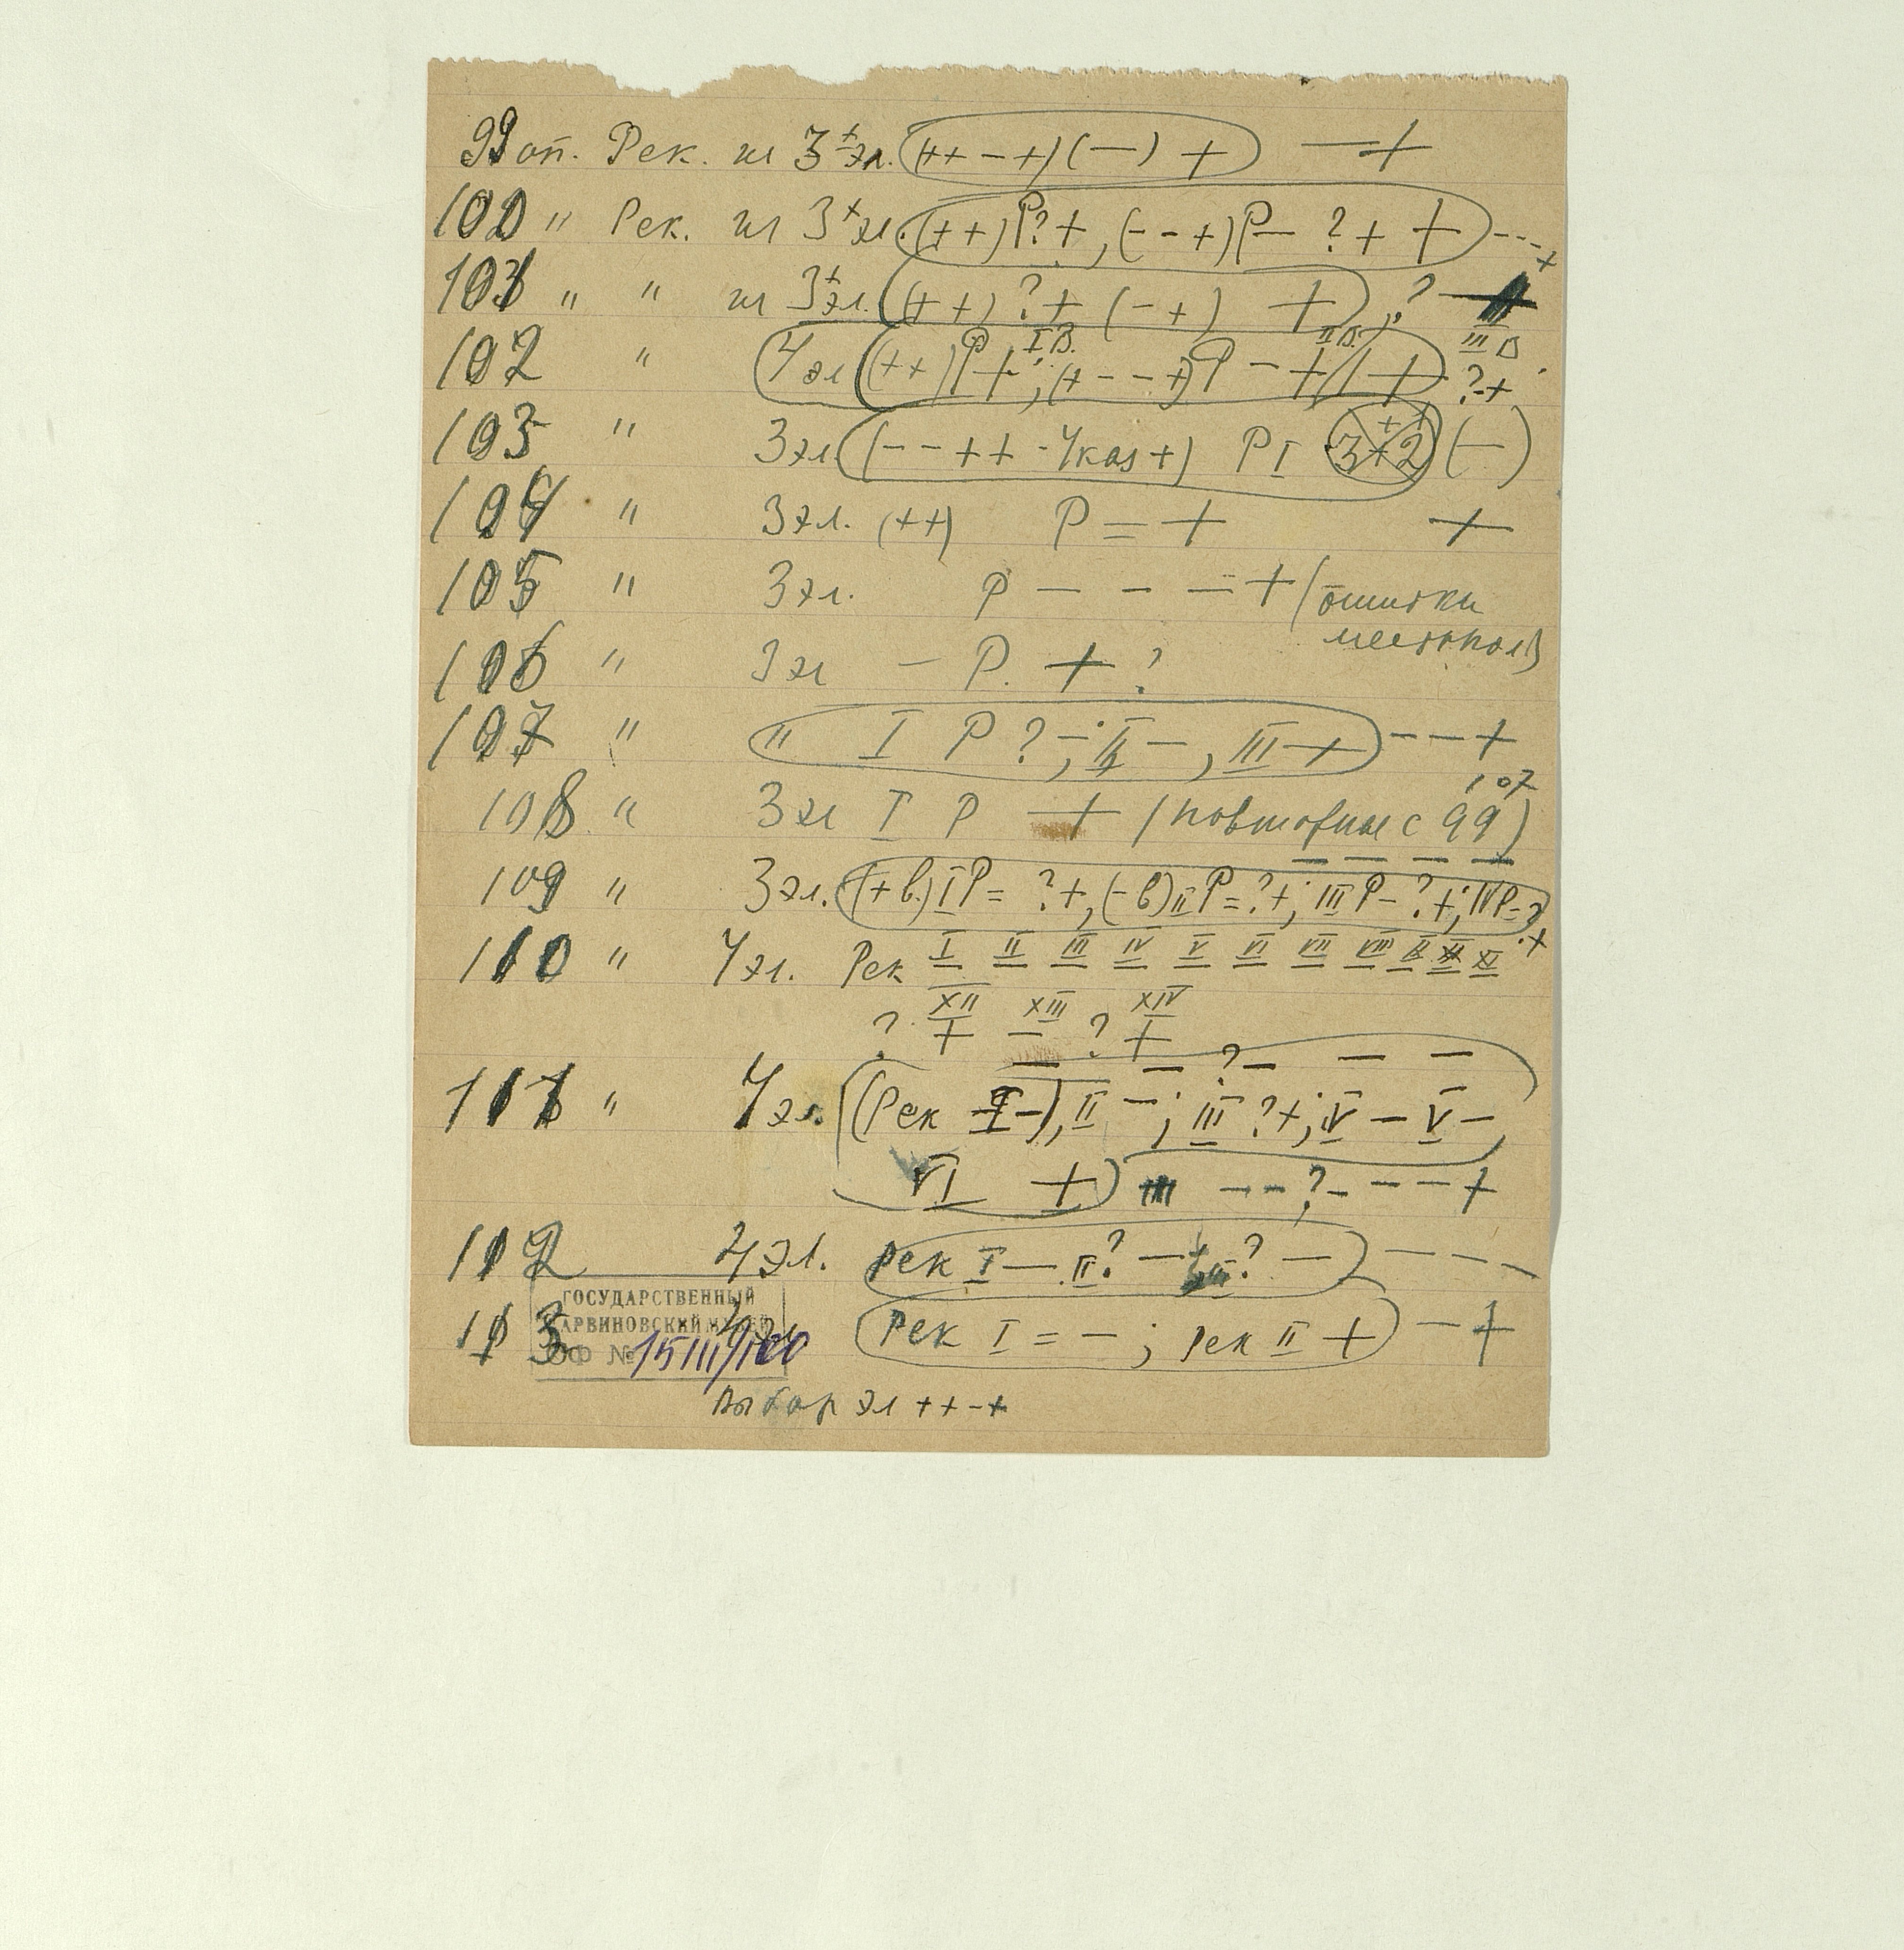 99 оп. Рек. из 3 + эл. (++ - +) (—) + — +
100 " Рек. из 3 + эл. (++) Р ? +, (- - +) Р — ? + + - - - +
101 " " из 3 + эл. (++) ? + (- +) + , ? —
102 " 4 эл (++) Р + I В. ; (+ - - +) Р - + II В. + III В ? +
103 " 3 эл. (- - ++ - 4 каз +) Р I 3 + 2 (—)
104 " 3 эл. (++) Р = + +
105 " 3 эл. Р — - - + (ошибки
106 " 3 эл — Р. + ?
107 " " I Р ? - ; II — , III + - - - +
108 " 3 эл I Р + (повторные с 99) 107
— — — —
109 " 3 эл. (+ в.) I Р = ? +, (- в) II Р = ? +; III Р - ? +; IV Р - ? . +
110 " 4 эл. Рек I II III IV V VI VII VIII IX X XI
? XII + XIII — ? XIV +
— — ? — — —
111 " 4 эл. (Рек I -), II — ; III ? +; IV — V —,
VI + — - ? - - - +
112 4 эл. Рек I — II ? — ? — — — —
113 эл Рек I = - ; Рек II + — +
ГОСУДАРСТВЕННЫЙ
ДАРВИНОВСКИЙ МУЗЕЙ
ОФ № 15111/100
Выбор эл + + - +